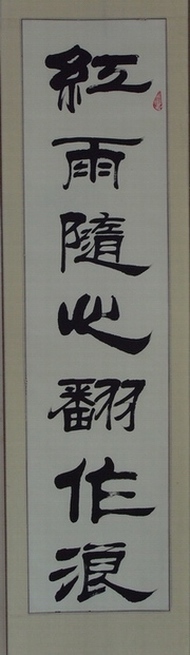 紅雨隨心翻作浪